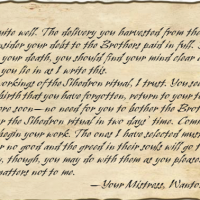 uite well. The delivery you harvested from the
sider your debt to the Brothers paid in full.
your death, you should find your mind clear
you lie in as I write this.
workings of the Sihedron ritual, I trust. You
birth that you have forgotten, return to your
ore soon—no need for you to bother the Brot
r the Sihedron ritual in two days' time. Com
begin your work. The ones I have selected mus
r no good and the greed in their souls will go
, though, you may do with them as you please
matters not to me.
—Your Mistress, Wanto